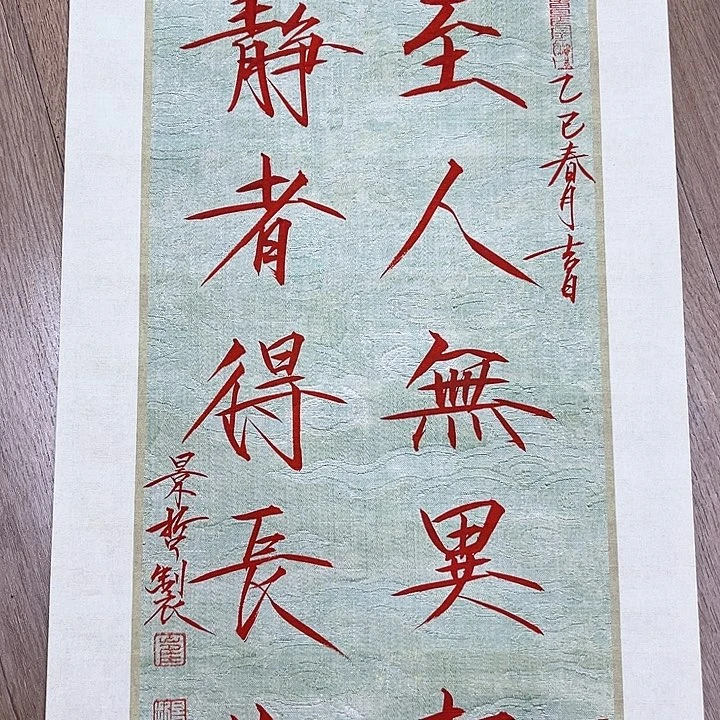 乙巳春月吉日
至人無異
靜者得長
景哲製